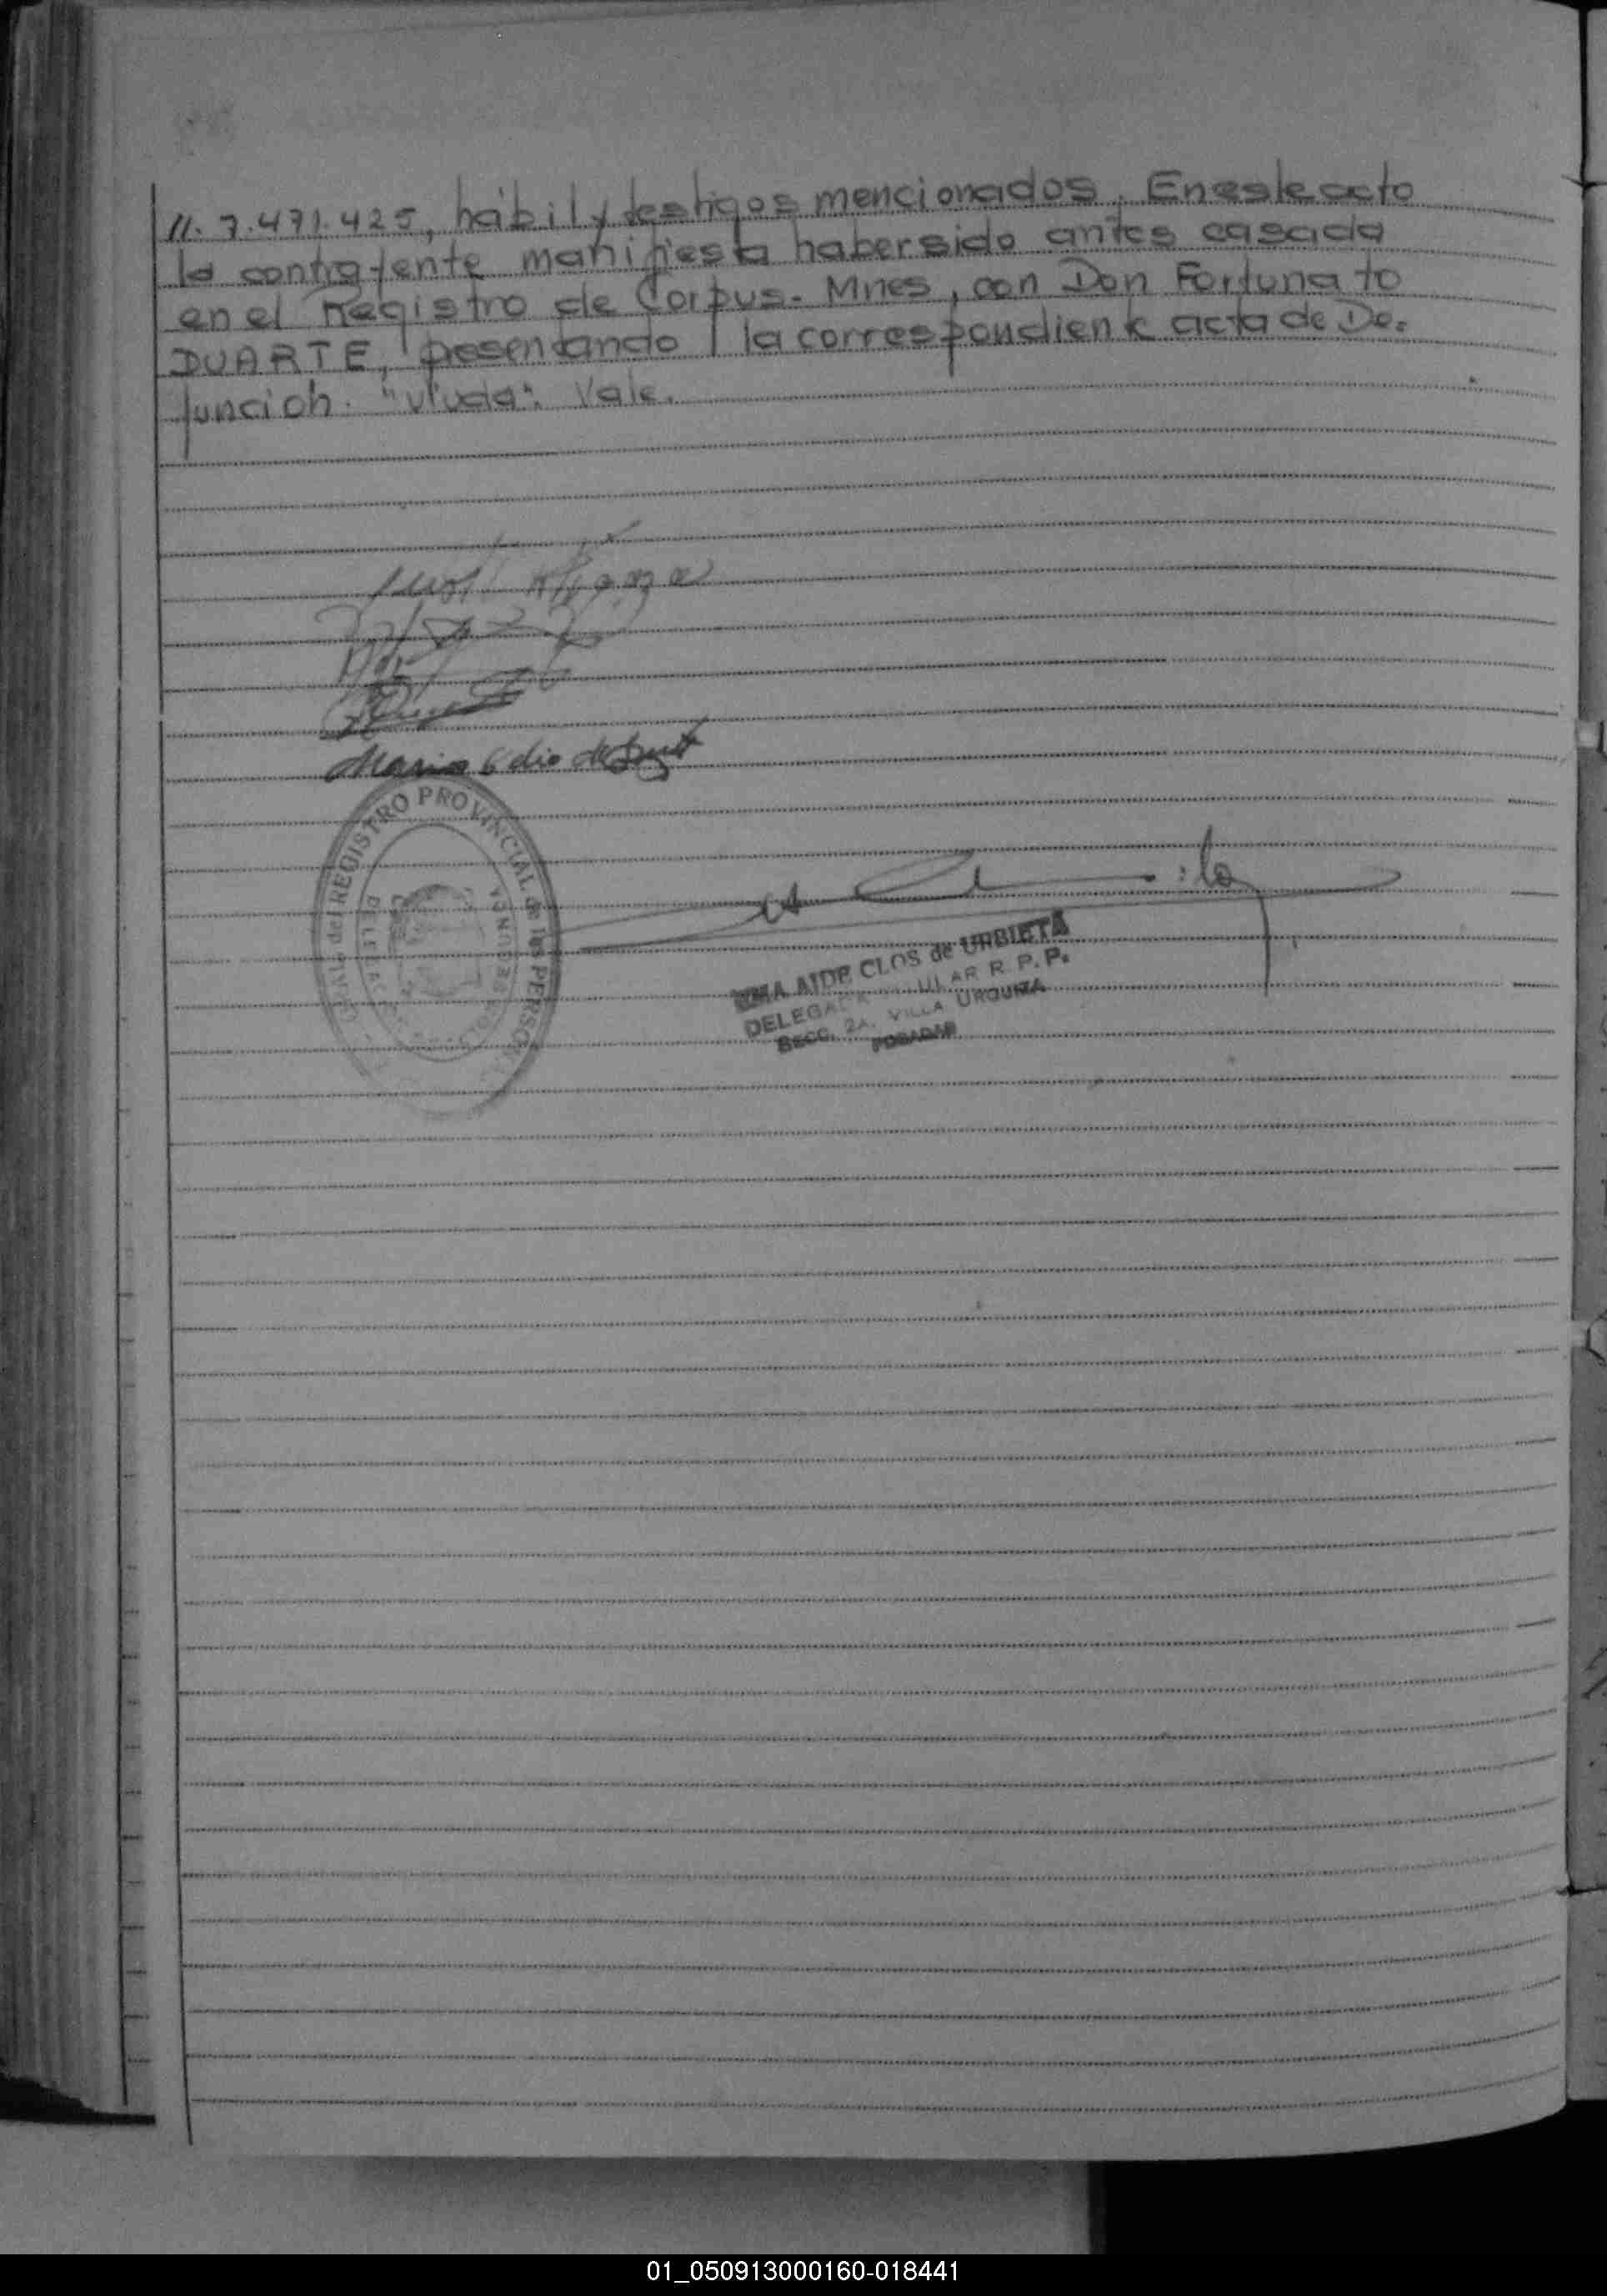 11. 7.471.425, hábil y testigos mencionados. En este acto
la contrayente manifiesta haber sido antes casada
en el Registro de Corpus - Mnes, con Don Fortunato
DUARTE, presentando la correspondiente acta de De-
función. "viuda": Vale.
REGISTRO PROVINCIAL de las PERSONAS
AIDE CLOS de URBIETA
R. P. P.
SECC. 2A. VILLA URQUIZA
POSADAS
01_050913000160-018441